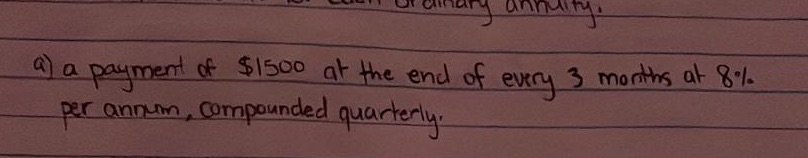 ordinary annuity.
a) a payment of $1500 at the end of every 3 months at 8%
per annum, compounded quarterly.